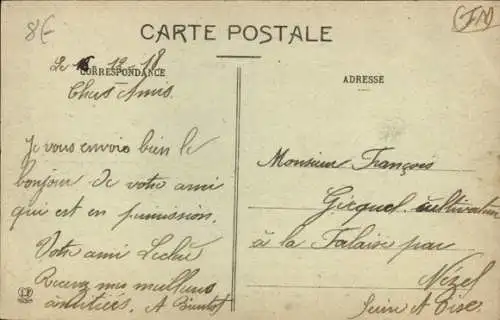 8f-
FN
CARTE POSTALE
CORRESPONDANCE
ADRESSE
Le 12-18
Chers Amis
Je vous envoie bien le
bonjour de votre ami
qui est en permission.
Votre ami
Recevez mes meilleurs
amitiés. A Bientot
Monsieur François
Gicquel cultivateur
à la Falaise par
Nézel
Seine et Oise